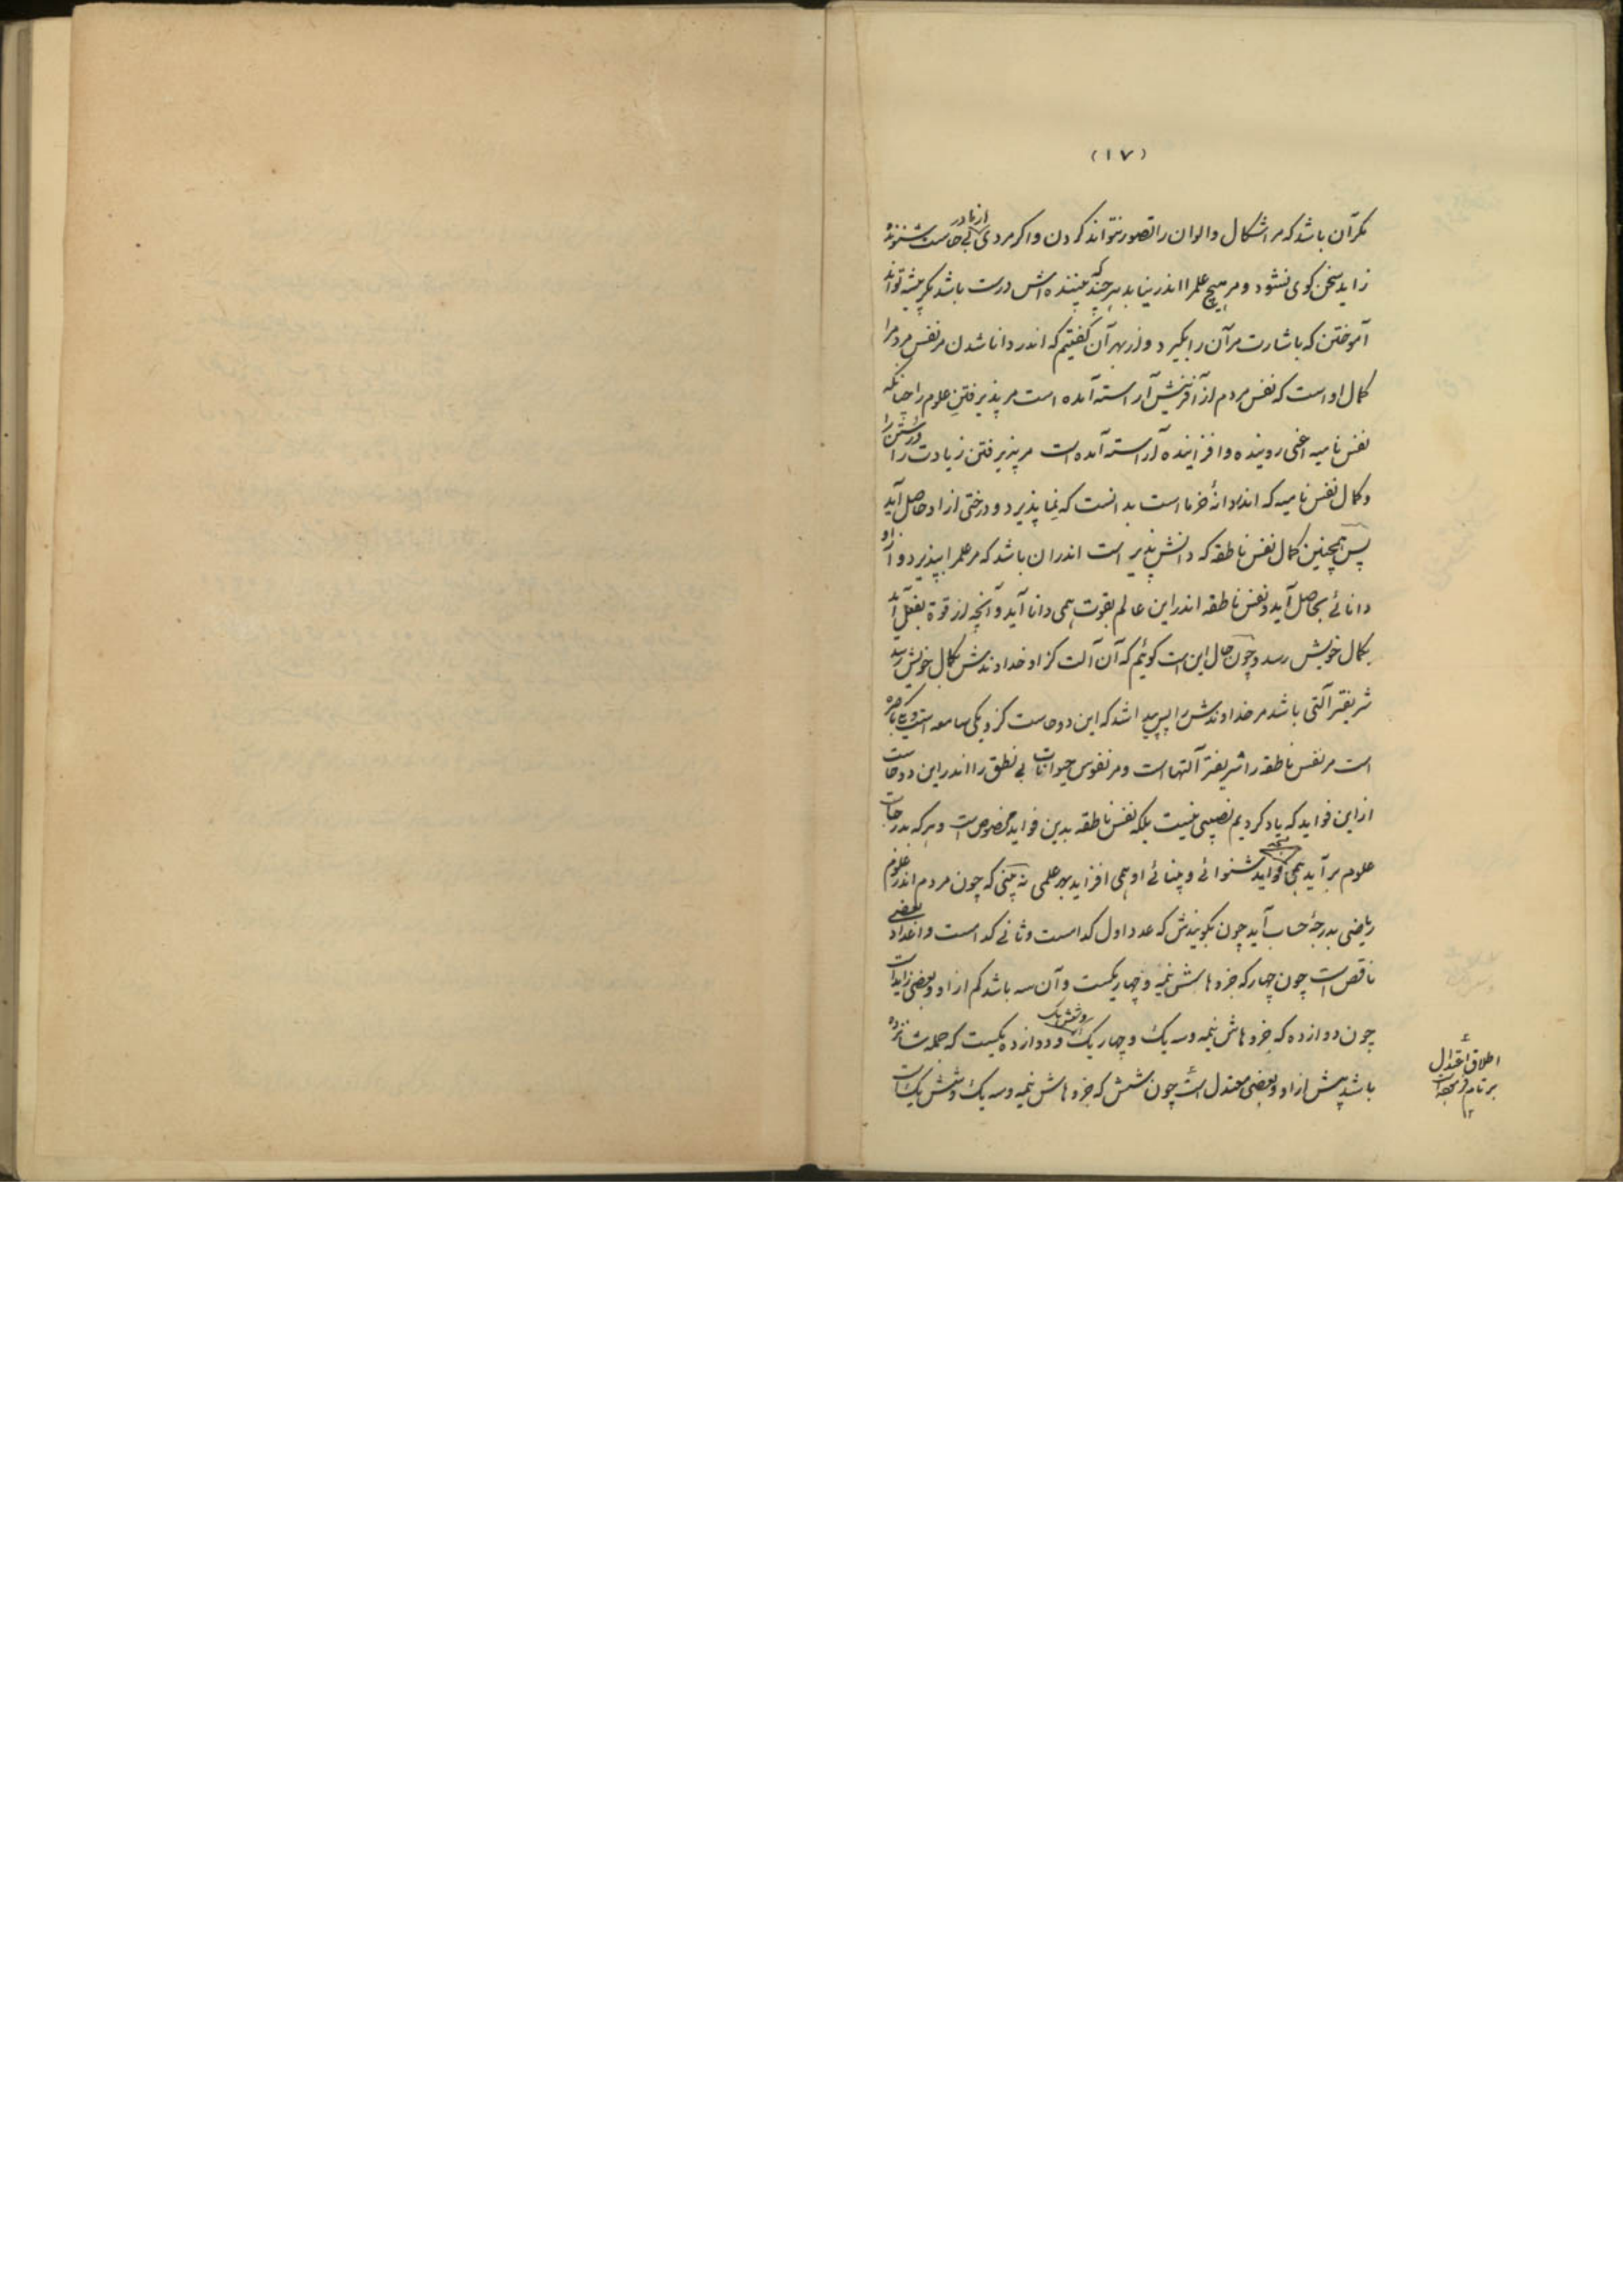 (۱۷)
مگر آن باشد که مر اشکال و الوان را تصور نتواند کردن و اگر مردی از مادر بی حاست شنونده
زاید سخن گوی نشود و مر هیچ علم را اندر نیابد هر چند که بیننده اش درست باشد مگر پیشه تواند
آموختن که باشارت مر آن را بگیرد و از بهر آن گفتیم که اندر دانا شدن مر نفس مردم را
کمال او است که نفس مردم از آفرینش آراسته آمده است مر پذیرفتن علوم را چنانکه
نفس نامیه اعنی روینده و افزاینده آراسته آمده است مر پذیرفتن زیادت را
و کمال نفس نامیه که اندر دانهٔ خرما است بدانست که نما پذیرد و درختی از او حاصل آید
پس همچنین کمال نفس ناطقه که دانش پذیر است اندران باشد که مر علم را بپذیرد و از او
دانائے بحاصل آید و نفس ناطقه اندر این عالم بقوت همی دانا آید و آنچه از قوة بفعل آید
بکمال خویش رسد و چون حال این است گوئیم که آن آلت کز او خداوندش بکمال خویش رسد
شریفتر آلتی باشد مر خداوندش را پس پیدا شد که این دو حاست کز و یکی سامعه است و یکی باصره
است مر نفس ناطقه را شریفتر آلتها است و مر نفوس حیوانات بے نطق را اندر این دو حاست
از این فواید که یاد کردیم نصیبی نیست بلکه نفس ناطقه بدین فواید مخصوص است و هر که بدرجات
علوم بر آید همی فواید شنوائے و بینائے او همی افزاید بهر علمی نه بینی که چون مردم اندر علوم
ریاضی بدرجهٔ حساب آید چون بگویندش که عدد اول کدامست و ثانے کدامست و اعداد بعضی
ناقص است چون چهار که جزوهاش نیمه و چهار یکست و آن سه باشد کم از او و بعضی زاید است
چون دوازده که جزوهاش نیمه و سه یک و چهار یک و شش یک و دوازده یکست که جمله شانزده
باشد بیش از او و بعضی معتدل است چون شش که جزوهاش نیمه و سه یک و شش یک است
اطلاق اعتدال
بر تام
۱۲